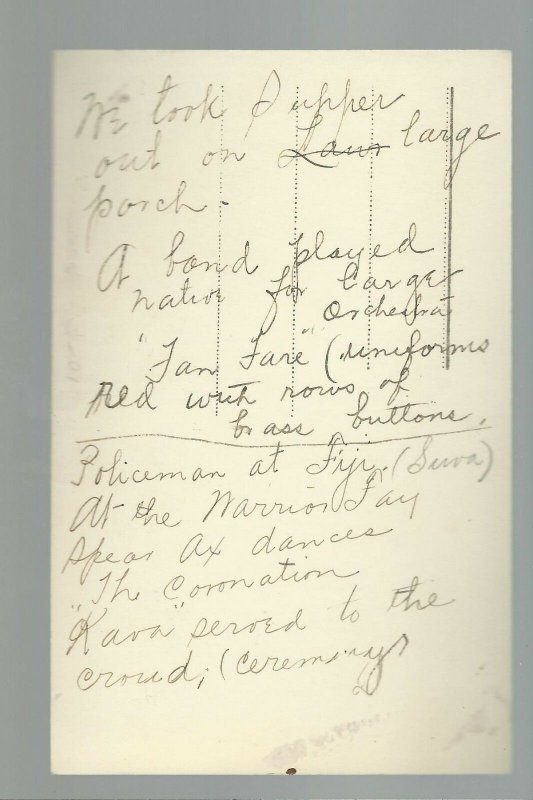 We took Supper
out on Lawn large
porch -
A band played
native for large
orchestra
"Fan Fare" (uniforms
Red with rows of
brass buttons.
Policeman at Fiji. (Suva)
At the Warrior Fay
spear ax dances
"The Coronation
Kava" served to the
crowd; (ceremony)